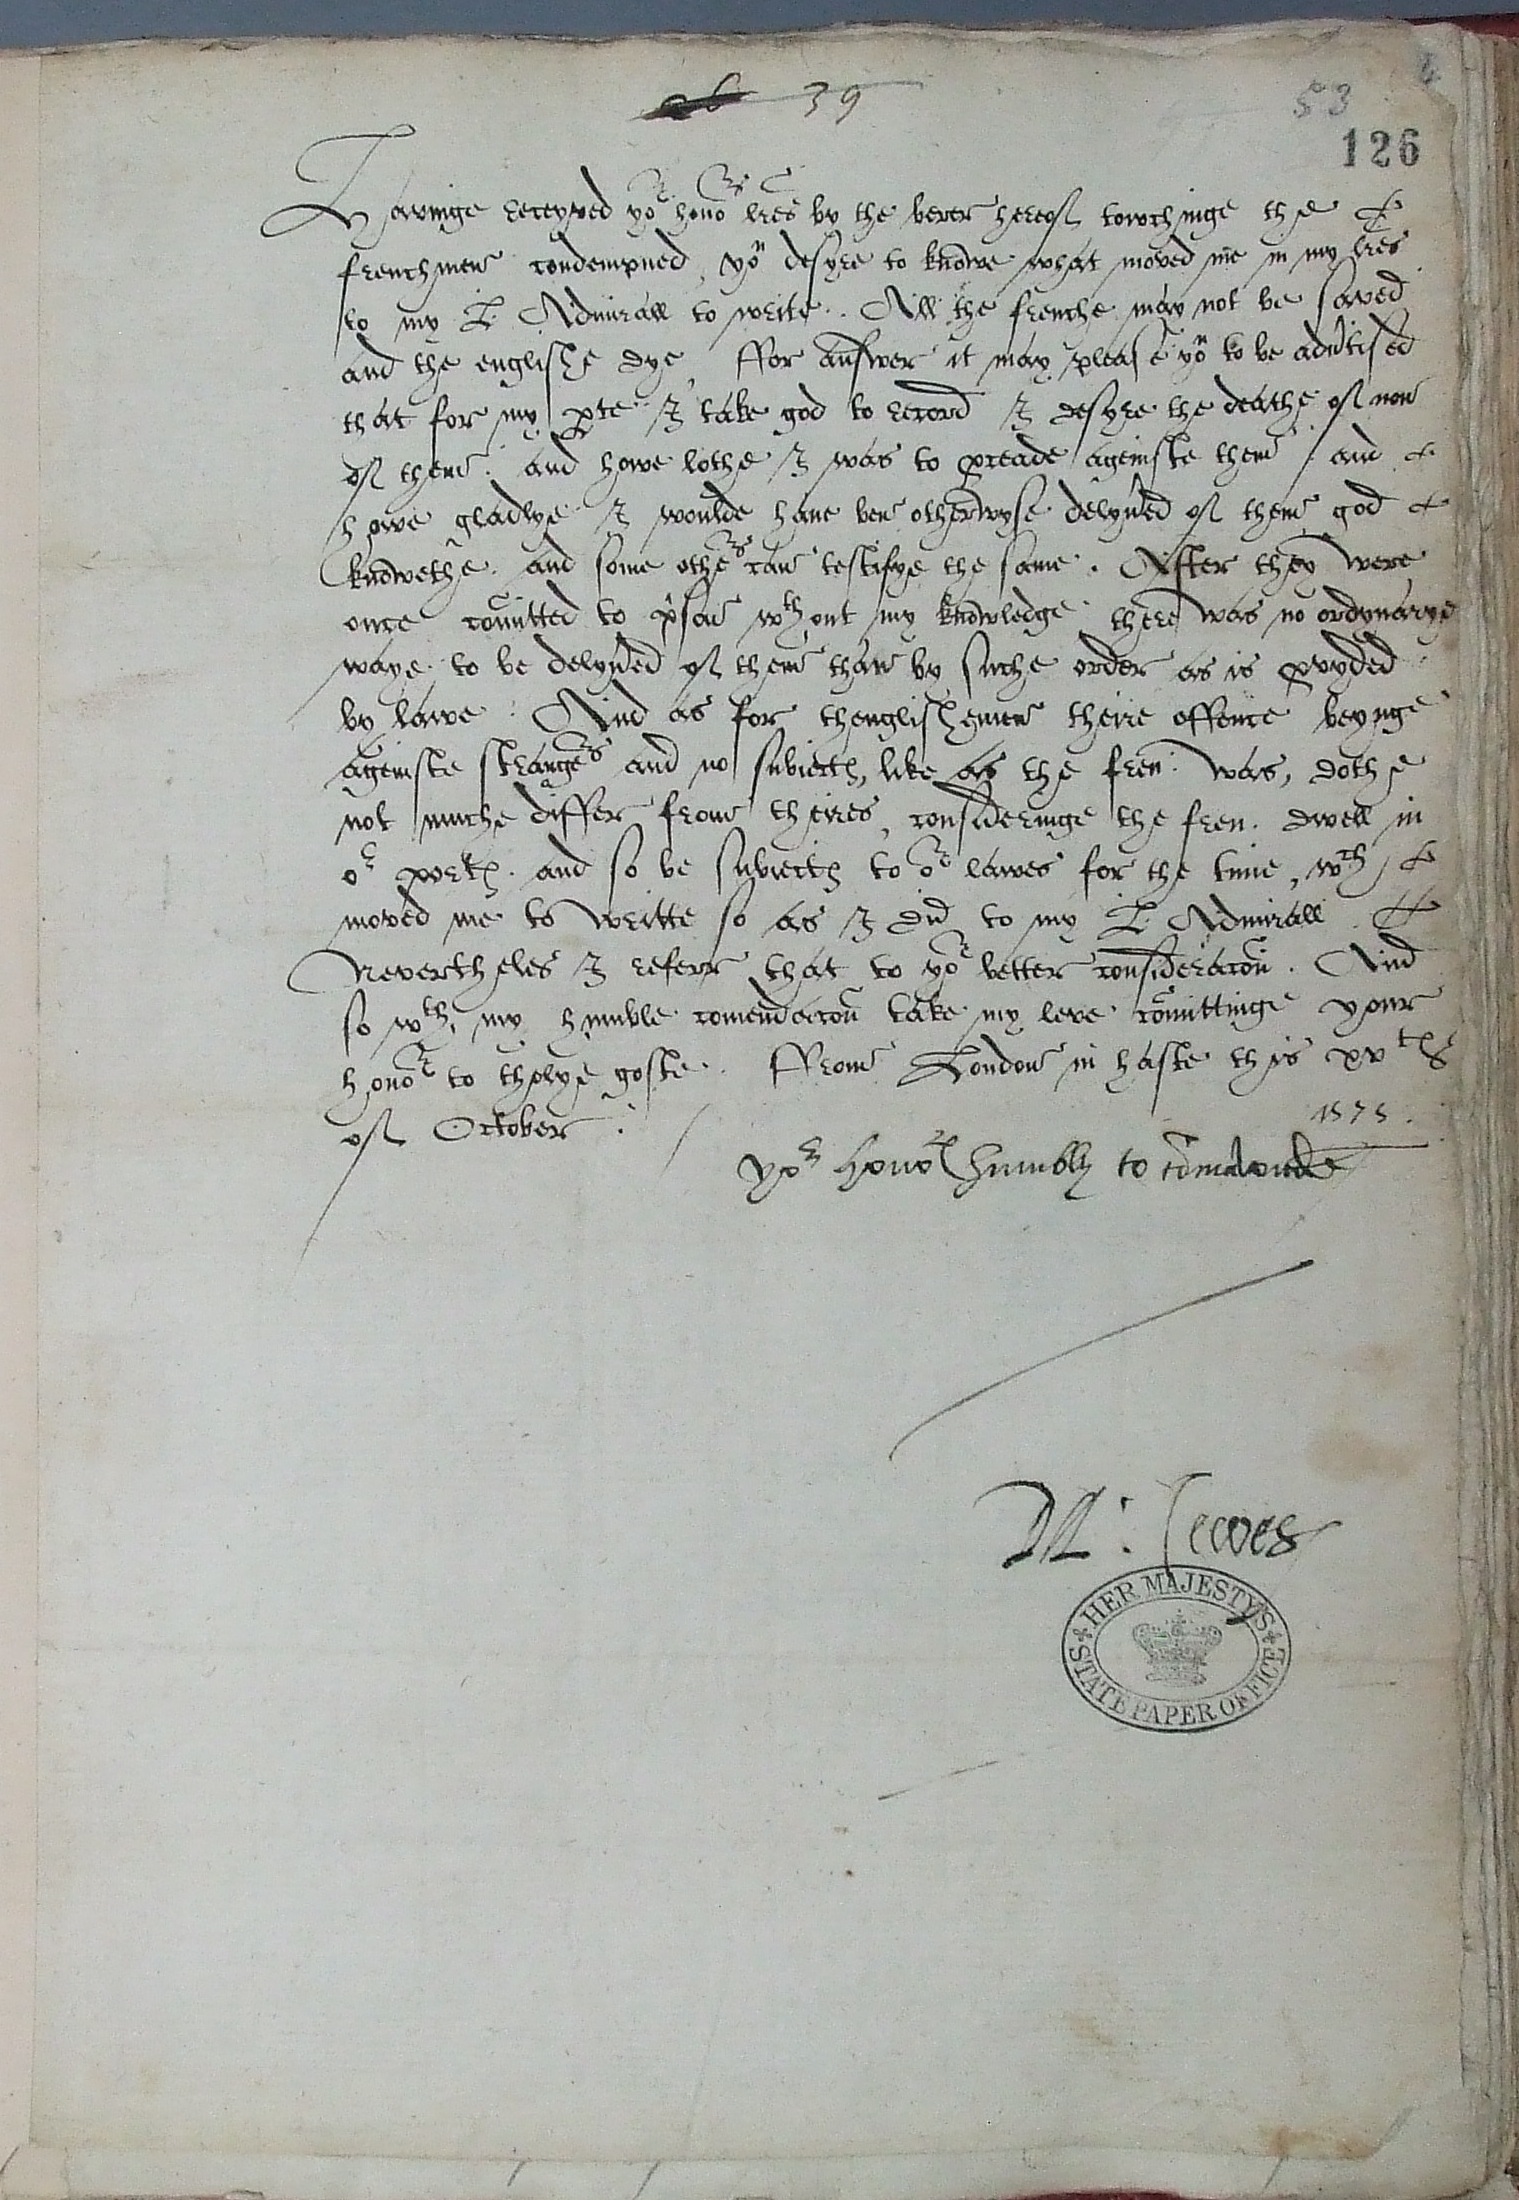 39
53
126
Havinge receyved yor honors lres by the berer hereof towchinge the
frenchmen condempned, you desyre to knowe what moved me in my lres
to my L. Admirall to write. All the frenche may not be saved
and the englishe dye, ffor answer it may please you to be advtised
that for my pte I take god to record I desyre the deathe of non
of them. and howe lothe I was to preade ageinste them. and
howe gladlye I woulde have ben otherwyse delyv'ed of them god
knowethe. and some others can testifye the same. After they were
once comitted to p'son wthout my knowledge there was no ordynarye
waye to be delyv'ed of them than by suche order as is pvyded
by lawe. And as for thenglishemen theire offence beynge
ageinste strangers and no subiects, like as the fren: was, dothe
not muche differ from theires, consideringe the fren. dwell in
or ports. and so be subiects to or lawes for the time, wch
moved me to writte so as I did to my L. Admirall.
Nevertheles I referr that to yor better consideracon. And
so wth my humble comendacon take my leve comittinge your
honor to tholye goste. ffrom London in haste this xvth
of October. 1575.
yor honors humbly to comaunde
D: Lewes
HER MAJESTY'S STATE PAPER OFFICE